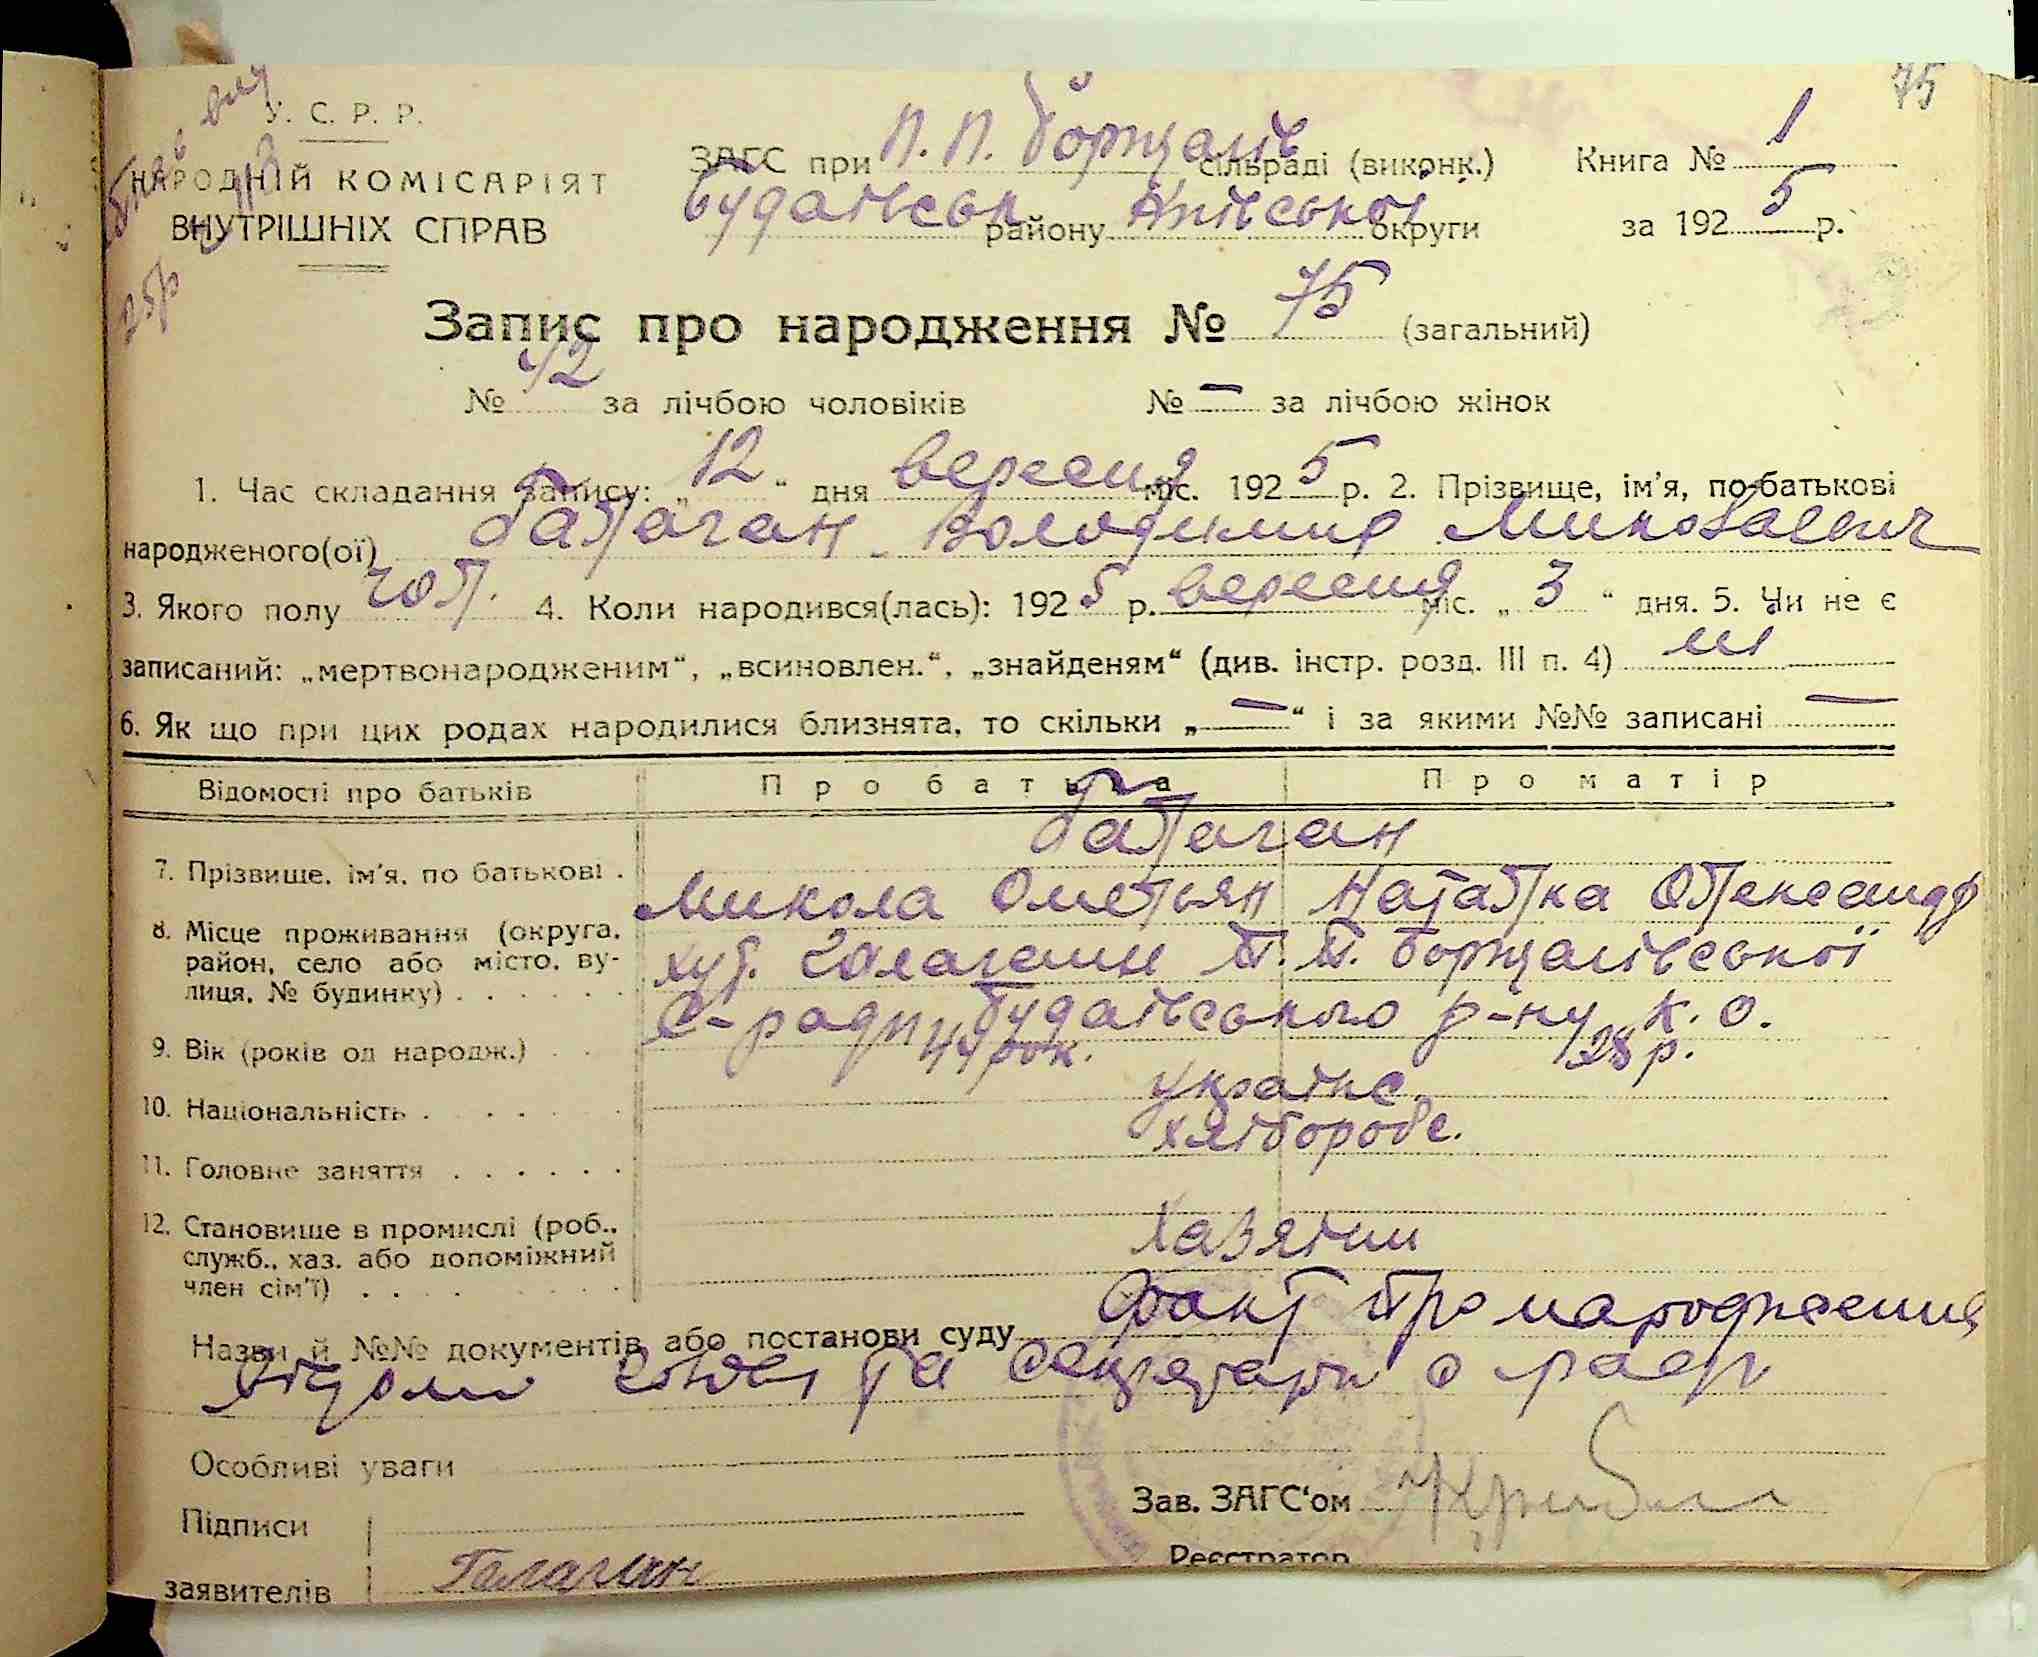 75
У. С. Р. Р.
НАРОДНІЙ КОМІСАРІЯТ
ВНУТРІШНІХ СПРАВ
ЗАГС при П. П. Борщагів сільраді (виконк.)
Будаївськ району Київської округи
Книга № 1
за 1925 р.
Запис про народження № 75 (загальний)
№ 42 за лічбою чоловіків № — за лічбою жінок
1. Час складання запису: „12“ дня вересня міс. 1925 р. 2. Прізвище, ім'я, по-батькові
народженого(ої) Галаган Володимир Миколаевич
3. Якого полу чол. 4. Коли народився(лась): 1925 р. вересня міс. „3“ дня. 5. Чи не є
записаний: „мертвонародженим“, „всиновлен.“, „знайденям“ (див. інстр. розд. III п. 4) ні
6. Як що при цих родах народилися близнята, то скільки „—“ і за якими №№ записані —
Відомості про батьків Про батька Про матір
Галаган
7. Прізвище, ім'я, по батькові .
Микола Омельян Наталка Олександр
8. Місце проживання (округа,
район, село або місто, ву-
лиця, № будинку) . . . . . .
хут. Галагани П. П. Борщагівської
С-ради Будаївського р-ну К. О.
9. Вік (років од народж.) . . 44 рок. 28 р.
10. Національність . . . . . Україн.
11. Головне заняття . . . . . . хлібороб.
12. Становище в промислі (роб.,
служб., хаз. або допоміжний
член сім'ї) . . . . . . . .
Хазяїни
Назви й №№ документів або постанови суду Факт про народження
відомо голові та секретарю с ради
Особливі уваги
Підписи
заявителів Галаган
Зав. ЗАГС'ом
Реєстратор